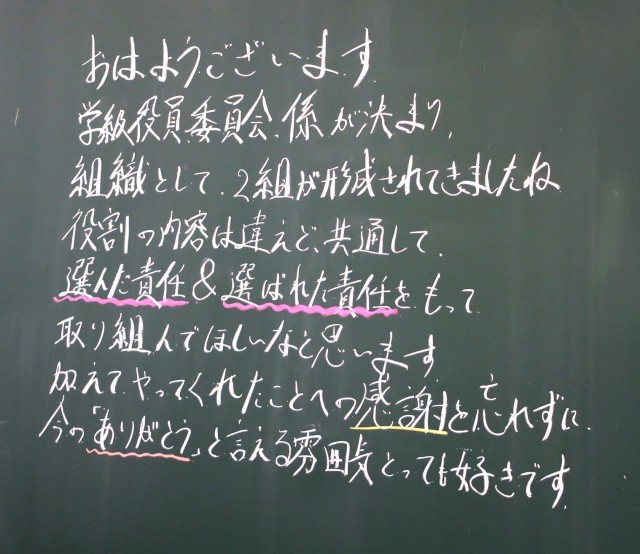 おはようございます
学級役員、委員会、係が決まり、
組織として、2組が形成されてきましたね
役割の内容は違えど、共通して、
選んだ責任&選ばれた責任をもって
取り組んでほしいなと思います
加えて、やってくれたことへの感謝を忘れずに、
今の「ありがとう」と言える雰囲気とっても好きです。